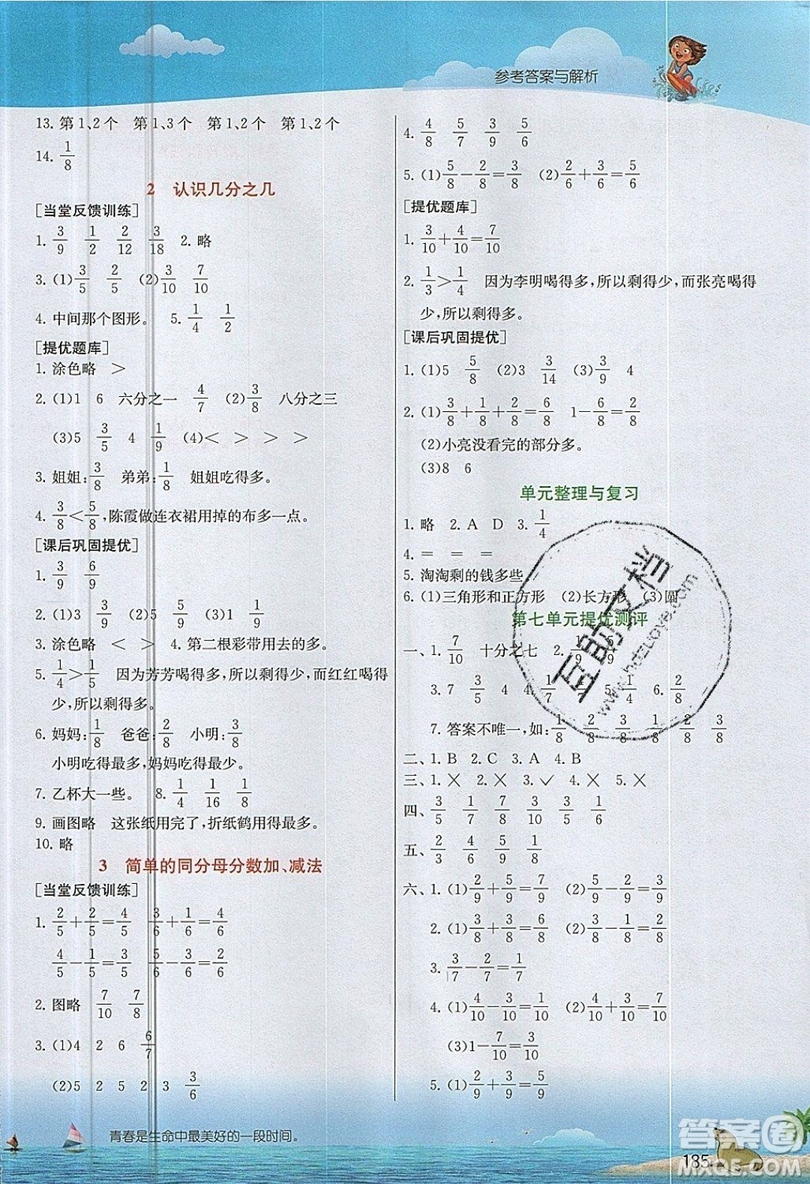 参考答案与解析
13. 第1、2个 第1、3个 第1、2个 第1、2个
14. 1/8
2 认识几分之几
[当堂反馈训练]
1. 3/9 1/2 2/12 3/18 2. 略
3. (1)3/5 2/5 (2)3/10 7/10
4. 中间那个图形。 5. 1/4 1/2
[提优题库]
1. 涂色略 >
2. (1)1 6 六分之一 4/7 (2)3/8 八分之三
(3)5 3/5 4 1/9 (4)< > > >
3. 姐姐:3/8 弟弟:1/8 姐姐吃得多。
4. 3/8<5/8,陈霞做连衣裙用掉的布多一点。
[课后巩固提优]
1. 3/9 6/9
2. (1)3 (2)9 4/9 (3)1/5
3. 涂色略 < > 4. 第二根彩带用去的多。
5. 1/4>1/5 因为芳芳喝得多,所以剩得少,而红红喝得
少,所以剩得多。
6. 妈妈:1/8 爸爸:2/8 小明:3/8
小明吃得最多,妈妈吃得最少。
7. 乙杯大一些。 8. 1/4 1/16 2/4
9. 画图略 这张纸用完了,折纸鹤用得最多。
10. 略
3 简单的同分母分数加、减法
[当堂反馈训练]
1. 2/5+2/5=4/5 3/6+1/6=4/6
4/5-1/5=3/5 4/6-2/6=2/6
2. 图略 7/10 7/8
3. (1)4 2 6 6/7
(2)5 2 3 3/6
4. 4/8 5/7 3/9 6/8
5. (1)5/8-2/8=3/8 (2)2/6+3/6=5/6
[提优题库]
1. 3/10+4/10=7/10
2. 1/3>1/4 因为李明喝得多,所以剩得少,而张亮喝得
少,所以剩得多。
[课后巩固提优]
1. (1)5 5/8 (2)3 3/14 (3)3/9 4
2. (1)3/8+1/8+2/8=6/8 1-6/8=2/8
(2)小亮没看完的部分多。
(3)8 6
单元整理与复习
1. 略 2. A D 3. 1/4
4. = = =
5. 淘淘剩的钱多些
6. (1)三角形和正方形 (2)长方形 (3)圆
第七单元提优测评
一、1. 7/10 十分之七 2.
3. 7 3/5 4 4. 1/7 5. 1/4 6. 2/8
7. 答案不唯一,如:1/8 2/8 3/8 1/8 2/8 3/8
二、1. B 2. C 3. A 4. B
三、1. × 2. × 3. √ 4. × 5. ×
四、3/5 1/7 7/8 3/5 1/6
五、2/3 4/9 2/4
六、1. (1)2/9+4/9=6/9 (2)4/9-2/9=2/9
2. (1)3/8+2/8=5/8 (2)3/8-2/8=1/8
3. 3/7-2/7=1/7
4. (1)4/10-3/10=1/10 (2)4/10+3/10=7/10
(3)1-7/10=3/10
5. (1)2/9+3/9=5/9 (2)5/9-1/9=4/9
青春是生命中最美好的一段时间。
185
互助文档
www.hdzuoye.com
答案圈
MXQE.COM